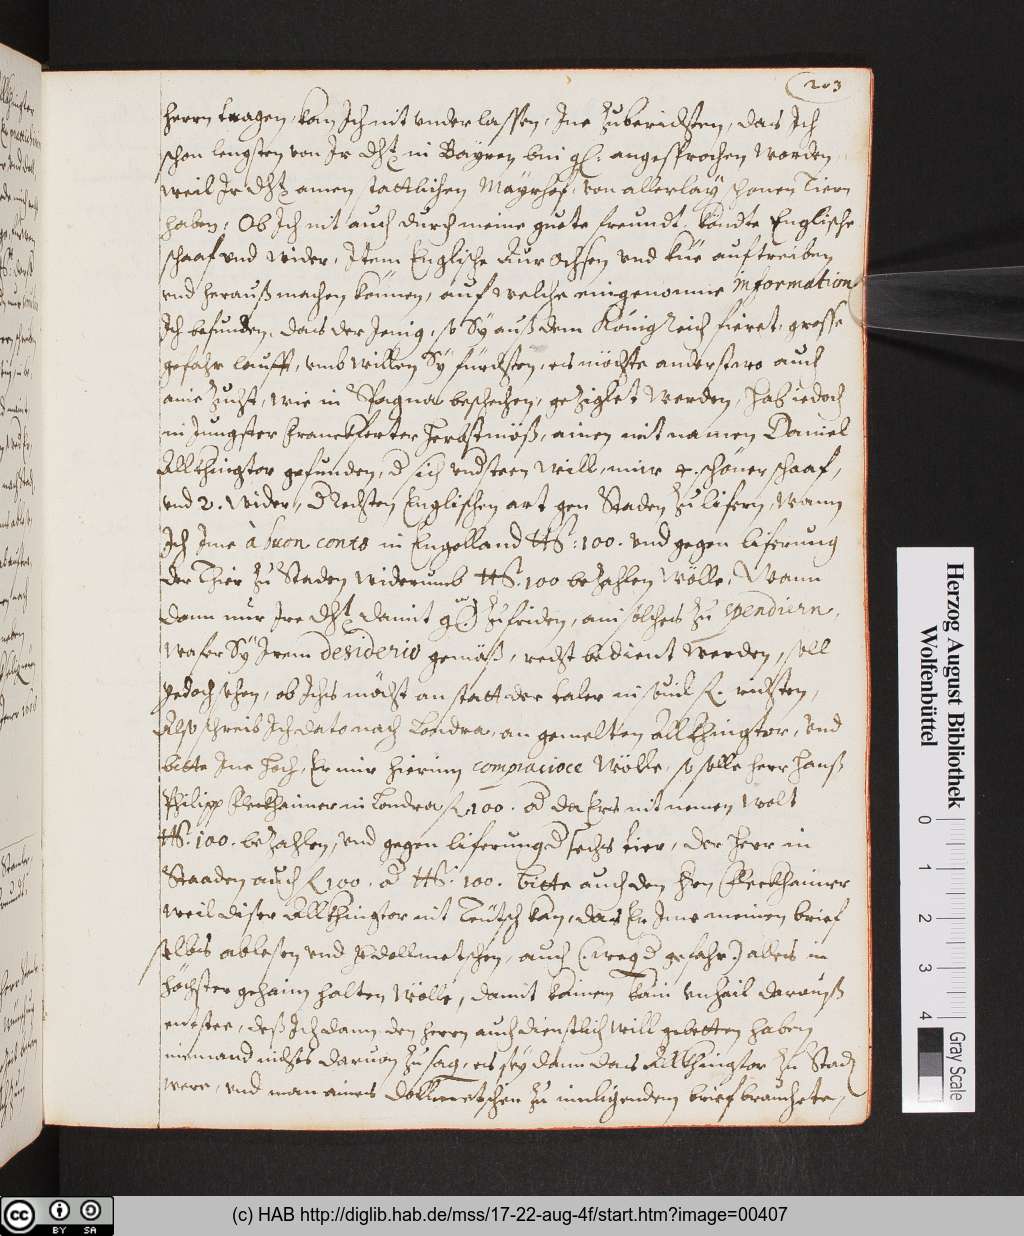 203
herrn tragen, kan Ich nit underlassen, Ime zuberichten, das Ich
schon lengsten von Ir Dht in Bayren bin angesprochen worden,
weil Ir Dht ainen stattlichen Mayrhof, von allerlay schönen Tiern
haben, Ob Ich nit auch durch meine guete freundt, köndte Englische
schaaf und wider, Item Englische Aur Ochsen und küe auftreiben
und herauß machen können, auf welche eingenomne information
Ich befunden, das der Jenig, so Sÿ auß dem Königreich fieret, grosse
gefahr laufft, umb willen Sÿ fürchten, es möchte anderstwo auch
aine zucht, wie in Spagna beschechen, geziglet werden, hab iedoch
in Jungster Franckforter Herbstmöß, ainen mit namen Daniel
Allthington gefunden, d sich understeen will, mir 4. schöner schaaf,
und 2. wider, d rechten Englischen art gen Staden zu lifern, wann
Ich Ime à buon conto in Engelland 100. und gegen liferung
der Thier zu Staden widerumb 100 bezahlen wölle, Wann
dann nur Ire Dht damit zufriden, ain solches zu spendiern,
wafer Sÿ Irem desiderio gemäß, recht bedient werden, soll
Jedoch sehen, ob Ichs möcht an statt der taler in souil R. richten,
Also schreib Ich dato nach Londra, an gemelten Allthington, und
bitte Ine hoch, Er mir hierinn compiacioce wölle, so solle herr Hanß
Philipp Fleckhaimer in Londra R. 100. od da Ers nit nemen wolt
100. bezahlen, und gegen liferung d sechs tier, der Herr in
Staaden auch R 100. od 100. bitte auch den Hrn Fleckhaimer
weil diser Allthington nit Teütsch kan, das Er Ime meinen brief
selbs ablesen und verdollmetschen, auch (: weg d gefahr :) alles in
höchster gehaim halten wölle, damit kainem kain unhail darauß
entstee, deß Ich dann den herrn auch dienstlich will gebetten haben
niemand nichts daruon zu sag, es seÿ dann das Allthington zu Stad
were, und man aines Dollmetschen zu innligendem brief brauchete,
Herzog August Bibliothek
Wolfenbüttel
0 1 2 3 4
Gray Scale
(c) HAB http://diglib.hab.de/mss/17-22-aug-4f/start.htm?image=00407
cc BY SA